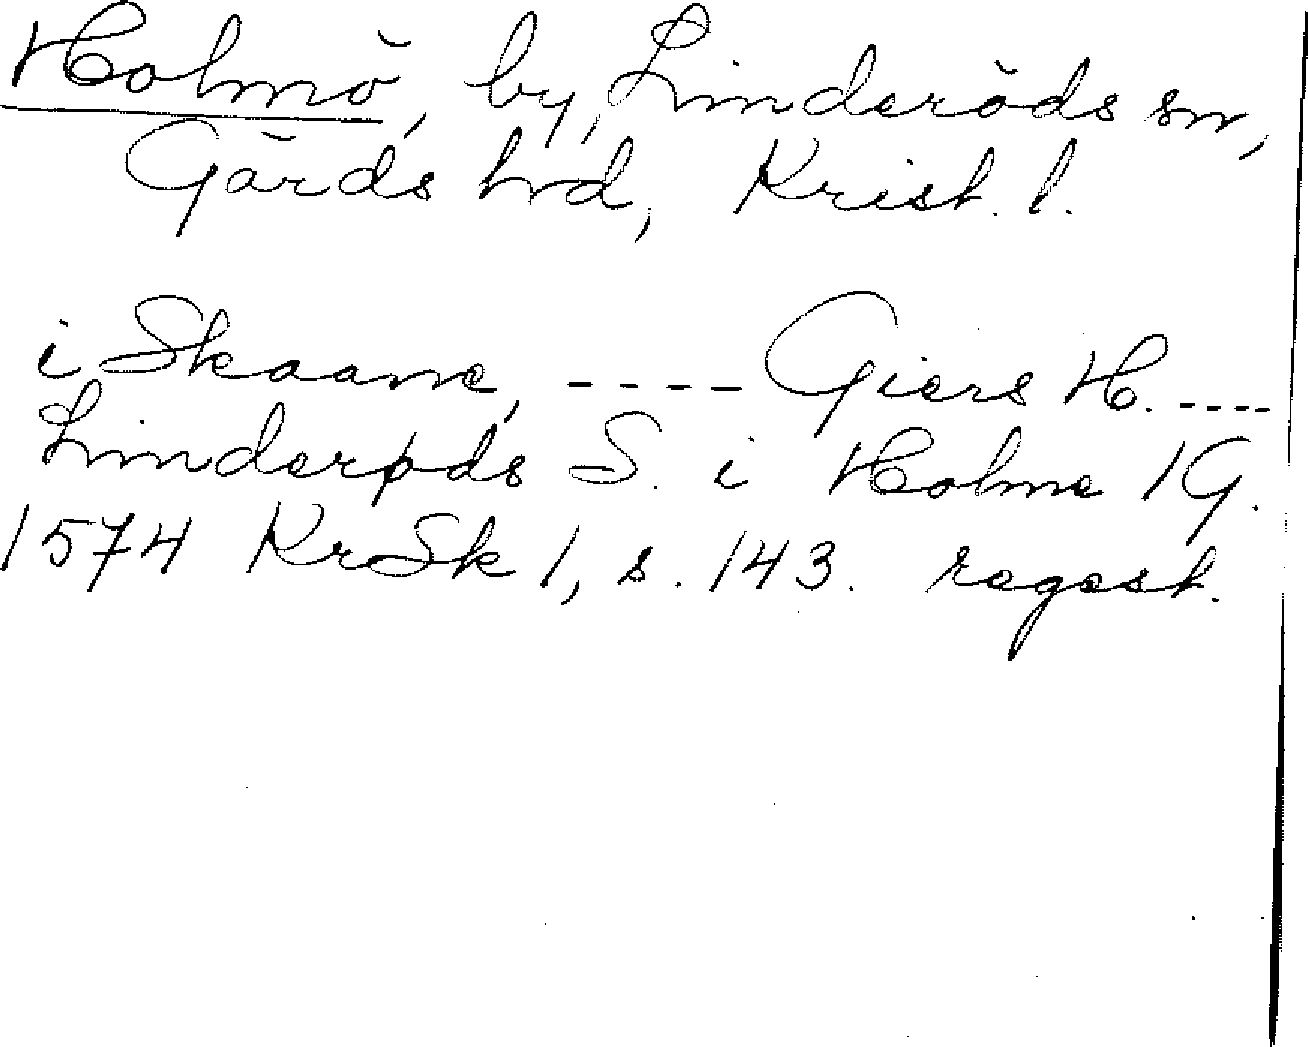 Holmö, by, Linderöds sn,
Gärds hrd, Krist. l.
i Skaane, ---- Giers H. ----
Linderøds S. i Holme 1 G.
1574 KrSk 1, s. 143. regest.